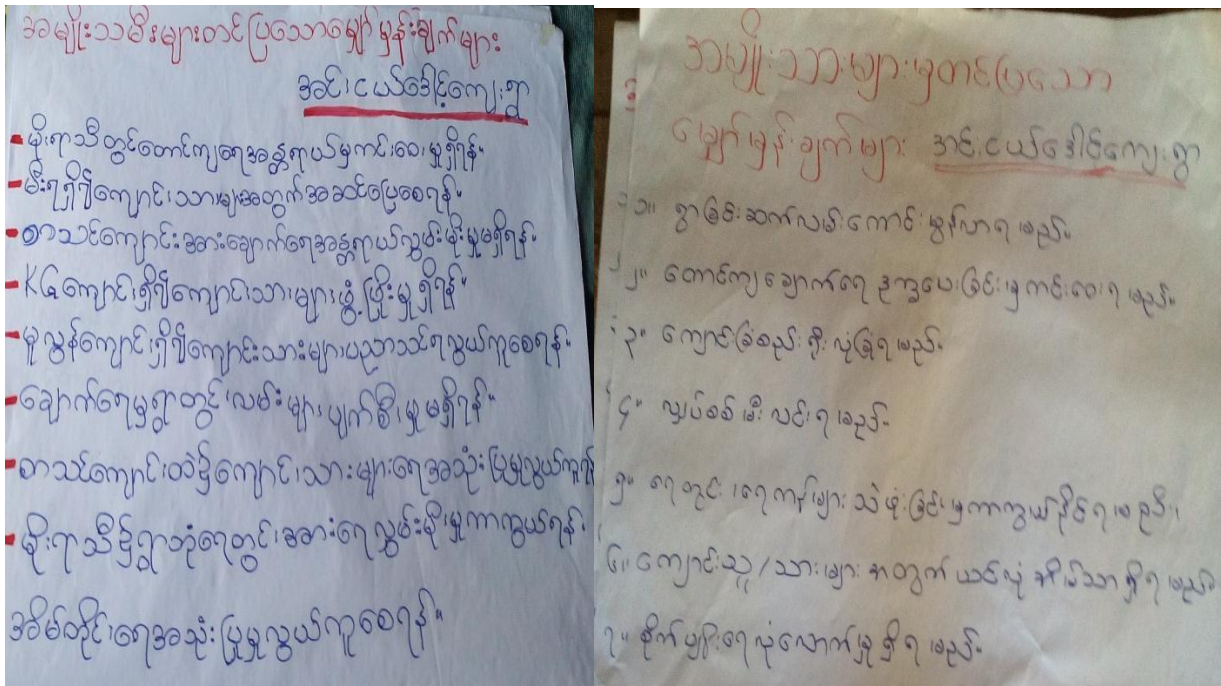 အမျိုးသမီးများတင်ပြသောမျှော်မှန်းချက်များ
အင်းငယ်ဒေါင့်ကျေးရွာ
- မိုးရာသီတွင်တောင်ကျရေအန္တရာယ်မှကင်းဝေးမှုရှိရန်။
- မီးရရှိ၍ကျောင်းသားများအတွက်အဆင်ပြေစေရန်။
- စာသင်ကျောင်းအားချောက်ရေအန္တရာယ်လွှမ်းမိုးမှုမရှိရန်။
- KG ကျောင်းရှိ၍ကျောင်းသားများဖွံ့ဖြိုးမှုရှိရန်။
- မူလွန်ကျောင်းရှိ၍ကျောင်းသားများပညာသင်ရလွယ်ကူစေရန်။
- ချောက်ရေမှရွာတွင်းလမ်းများပျက်စီးမှုမရှိရန်။
- စာသင်ကျောင်းထဲ၌ကျောင်းသားများရေအသုံးပြုမှုလွယ်ကူရန်
- မိုးရာသီ၌ရွာဘုံရေတွင်းအားရေလွှမ်းမိုးမှုကာကွယ်ရန်။
အိမ်တိုင်းရေအသုံးပြုမှုလွယ်ကူစေရန်။
အမျိုးသားများမှတင်ပြသော
မျှော်မှန်းချက်များ အင်းငယ်ဒေါင့်ကျေးရွာ
၁။ ရွာခြင်းဆက်လမ်းကောင်းမွန်လာရမည်။
၂။ တောင်ကျချောက်ရေဒုက္ခပေးခြင်းမှကင်းဝေးရမည်။
၃။ ကျောင်းခြံစည်းရိုးလုံခြုံရမည်။
၄။ လျှပ်စစ်မီးလင်းရမည်။
၅။ ရေတွင်း၊ရေကန်များသဲဖုံးခြင်းမှကာကွယ်နိုင်ရမည်။
၆။ ကျောင်းသူ/သားများအတွက်ယင်လုံအိမ်သာရှိရမည်။
၇။ စိုက်ပျိုးရေလုံလောက်မှုရှိရမည်။